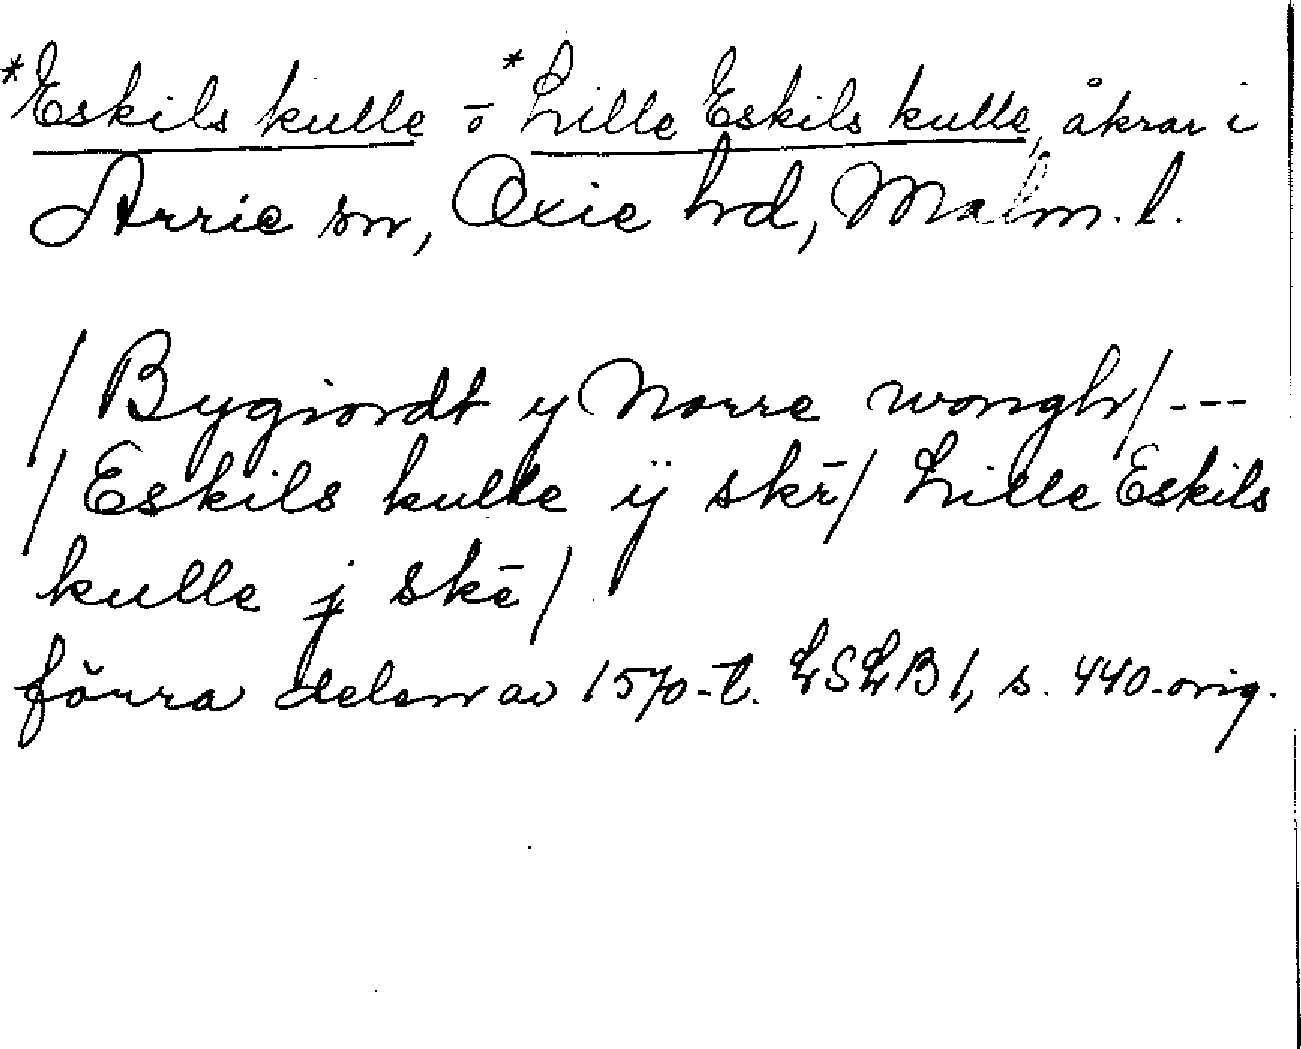 *Eskils kulle o *Lille Eskils kulle, åkrar i
Arrie sn, Oxie hd, Malm. l.
/ Bygiordt y Norre wongh/ ---
/ Eskils kulle ij skē/ Lille Eskils
kulle j skē /
förra delen av 1570-t. LSLB 1, s. 440-orig.